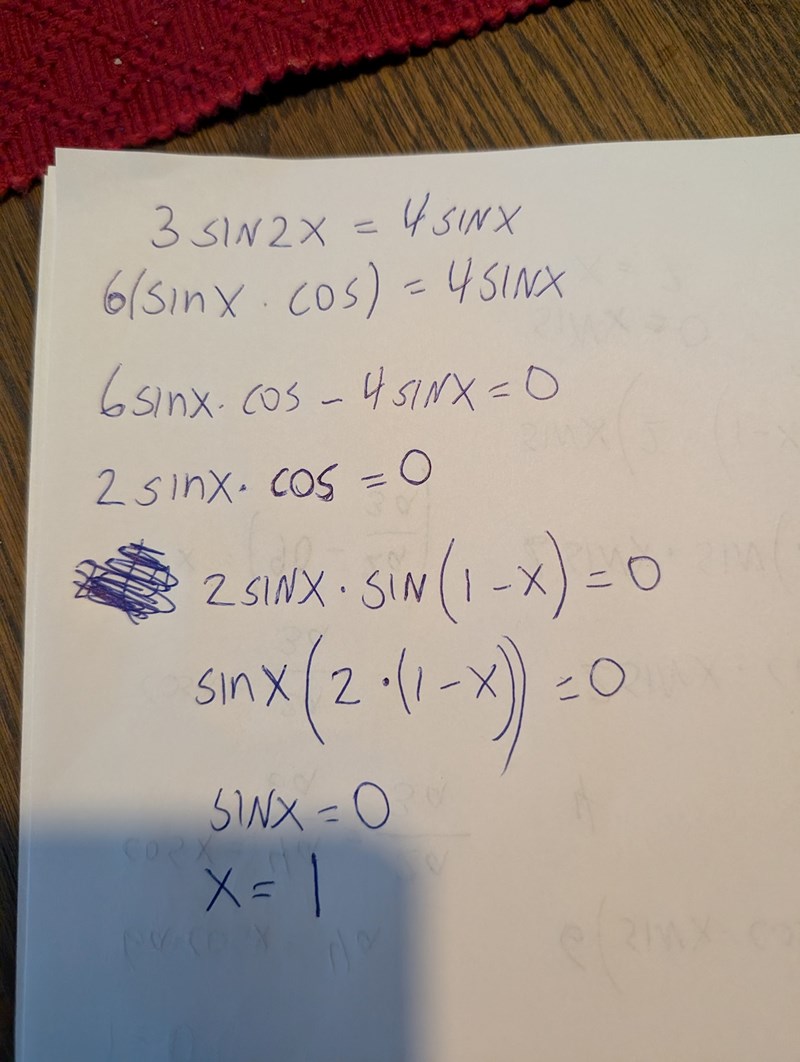 3 SIN2X = 4SINX
6(sinx · cos) = 4SINX
6sinx · cos - 4SINX = 0
2sinx · cos = 0
2SINX · SIN(1-X) = 0
sinx(2 · (1-X)) = 0
SINX = 0
X = 1